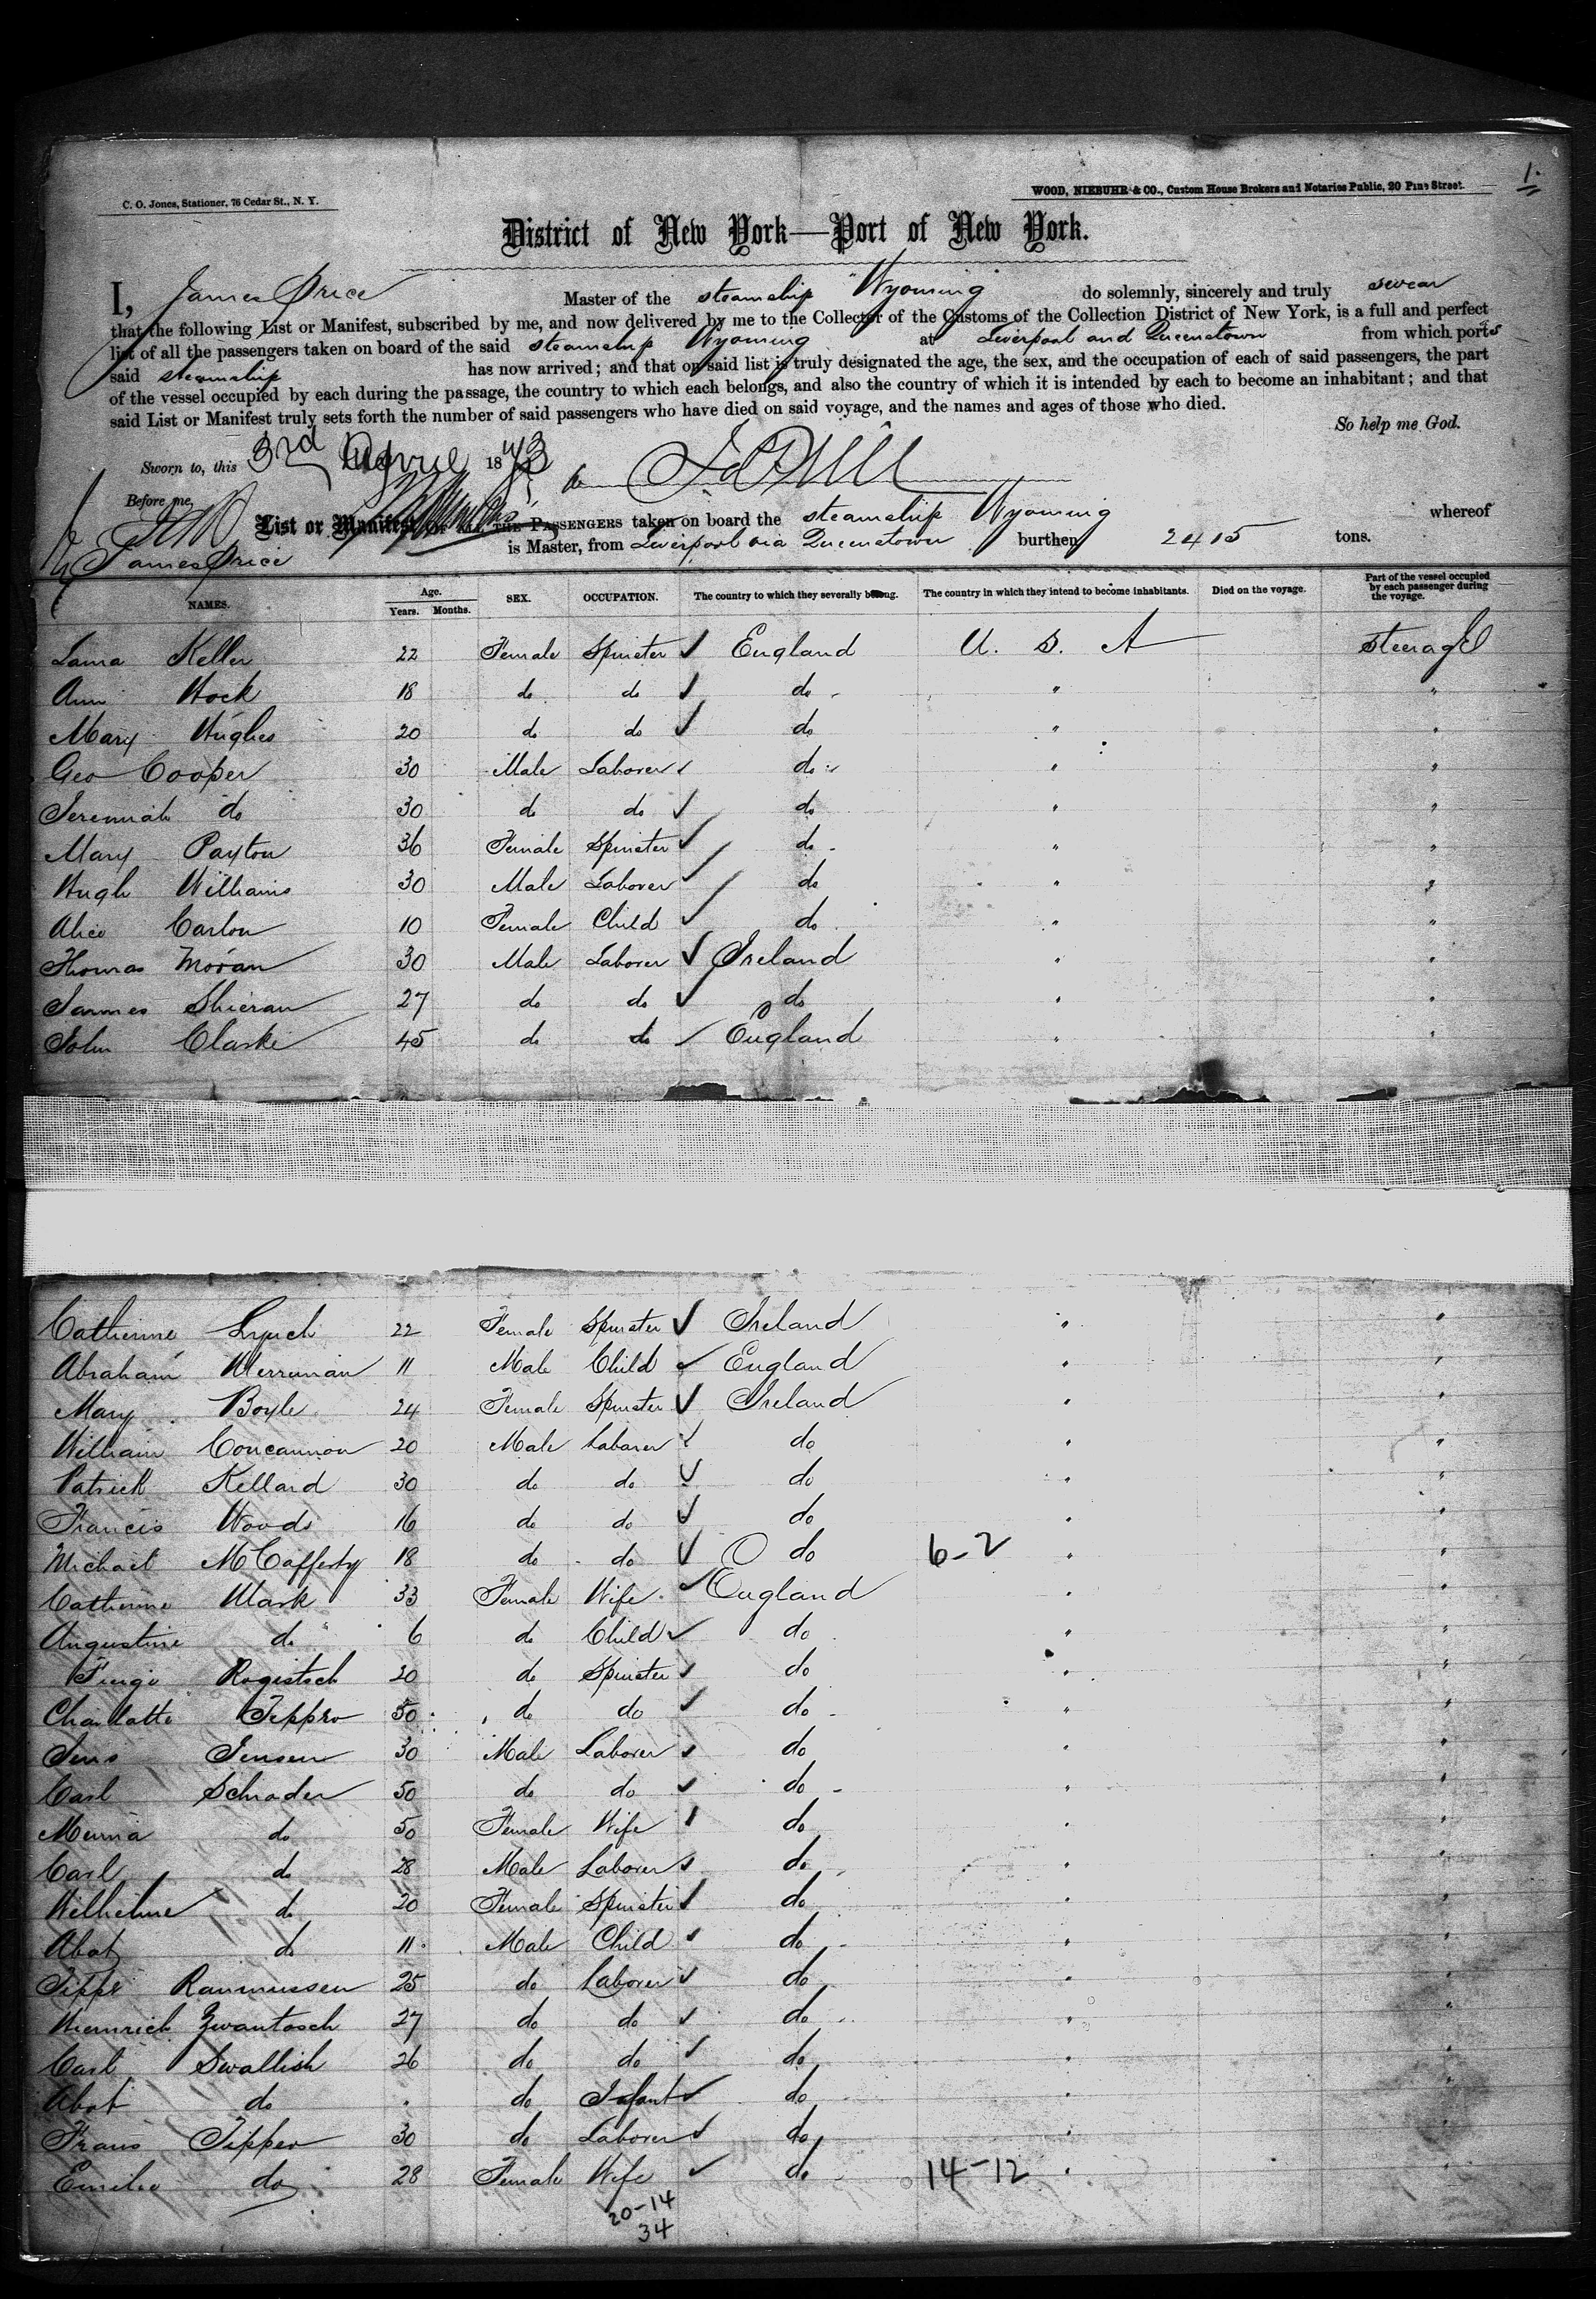 1.
C. O. Jones, Stationer, 76 Cedar St., N. Y.
WOOD, NIEBUHR & CO., Custom House Brokers and Notaries Public, 20 Pine Street.
District of New York—Port of New York.
I, James Price Master of the steamship Wyoming do solemnly, sincerely and truly swear
that the following List or Manifest, subscribed by me, and now delivered by me to the Collector of the Customs of the Collection District of New York, is a full and perfect
list of all the passengers taken on board of the said steamship Wyoming at Liverpool and Queenstown from which ports
said steamship has now arrived; and that on said list is truly designated the age, the sex, and the occupation of each of said passengers, the part
of the vessel occupied by each during the passage, the country to which each belongs, and also the country of which it is intended by each to become an inhabitant; and that
said List or Manifest truly sets forth the number of said passengers who have died on said voyage, and the names and ages of those who died.
So help me God.
Sworn to, this 3rd April 1873
Before me,
List or Manifest OF ALL THE PASSENGERS taken on board the steamship Wyoming whereof
James Price is Master, from Liverpool via Queenstown burthen 2415 tons.
NAMES. Age. Years. Months. SEX. OCCUPATION. The country to which they severally belong. The country in which they intend to become inhabitants. Died on the voyage. Part of the vessel occupied by each passenger during the voyage.
Laura Keller 22 Female Spinster England U. S. A steerage
Ann Hock 18 do do do "
Mary Hughes 20 do do do "
Geo Cooper 30 Male Laborer do "
Jeremiah do 30 do do do "
Mary Payton 36 Female Spinster do "
Hugh Williams 30 Male Laborer do "
Alice Carlon 10 Female Child do "
Thomas Moran 30 Male Laborer Ireland "
James Shieran 27 do do do "
John Clarke 45 do do England "
Catherine Lynch 22 Female Spinster Ireland "
Abraham Merriman 11 Male Child England "
Mary Boyle 24 Female Spinster Ireland "
William Concannon 20 Male Laborer do "
Patrick Kellard 30 do do do "
Francis Woods 16 do do do "
Michael McCafferty 18 do do do 6-2 "
Catherine Mark 33 Female Wife England "
Augustine do 6 do Child do "
Rogistsch 20 do Spinster do "
Charlotte Teppro 50 do do do "
Jens Jensen 30 Male Laborer do "
Carl Schrader 50 do do do "
Menna do 50 Female Wife do "
Carl do 28 Male Laborer do "
Wilhelme do 20 Female Spinster do "
Abat do 11 Male Child do "
Jeppe Rasmussen 25 do Laborer do "
Hiernrich Zwantosch 27 do do do "
Carl Swallish 26 do do do "
Abat do do Infant do "
Frans Tipper 30 do Laborer do "
Emilie do 28 Female Wife do 14-12 "
20-14
34